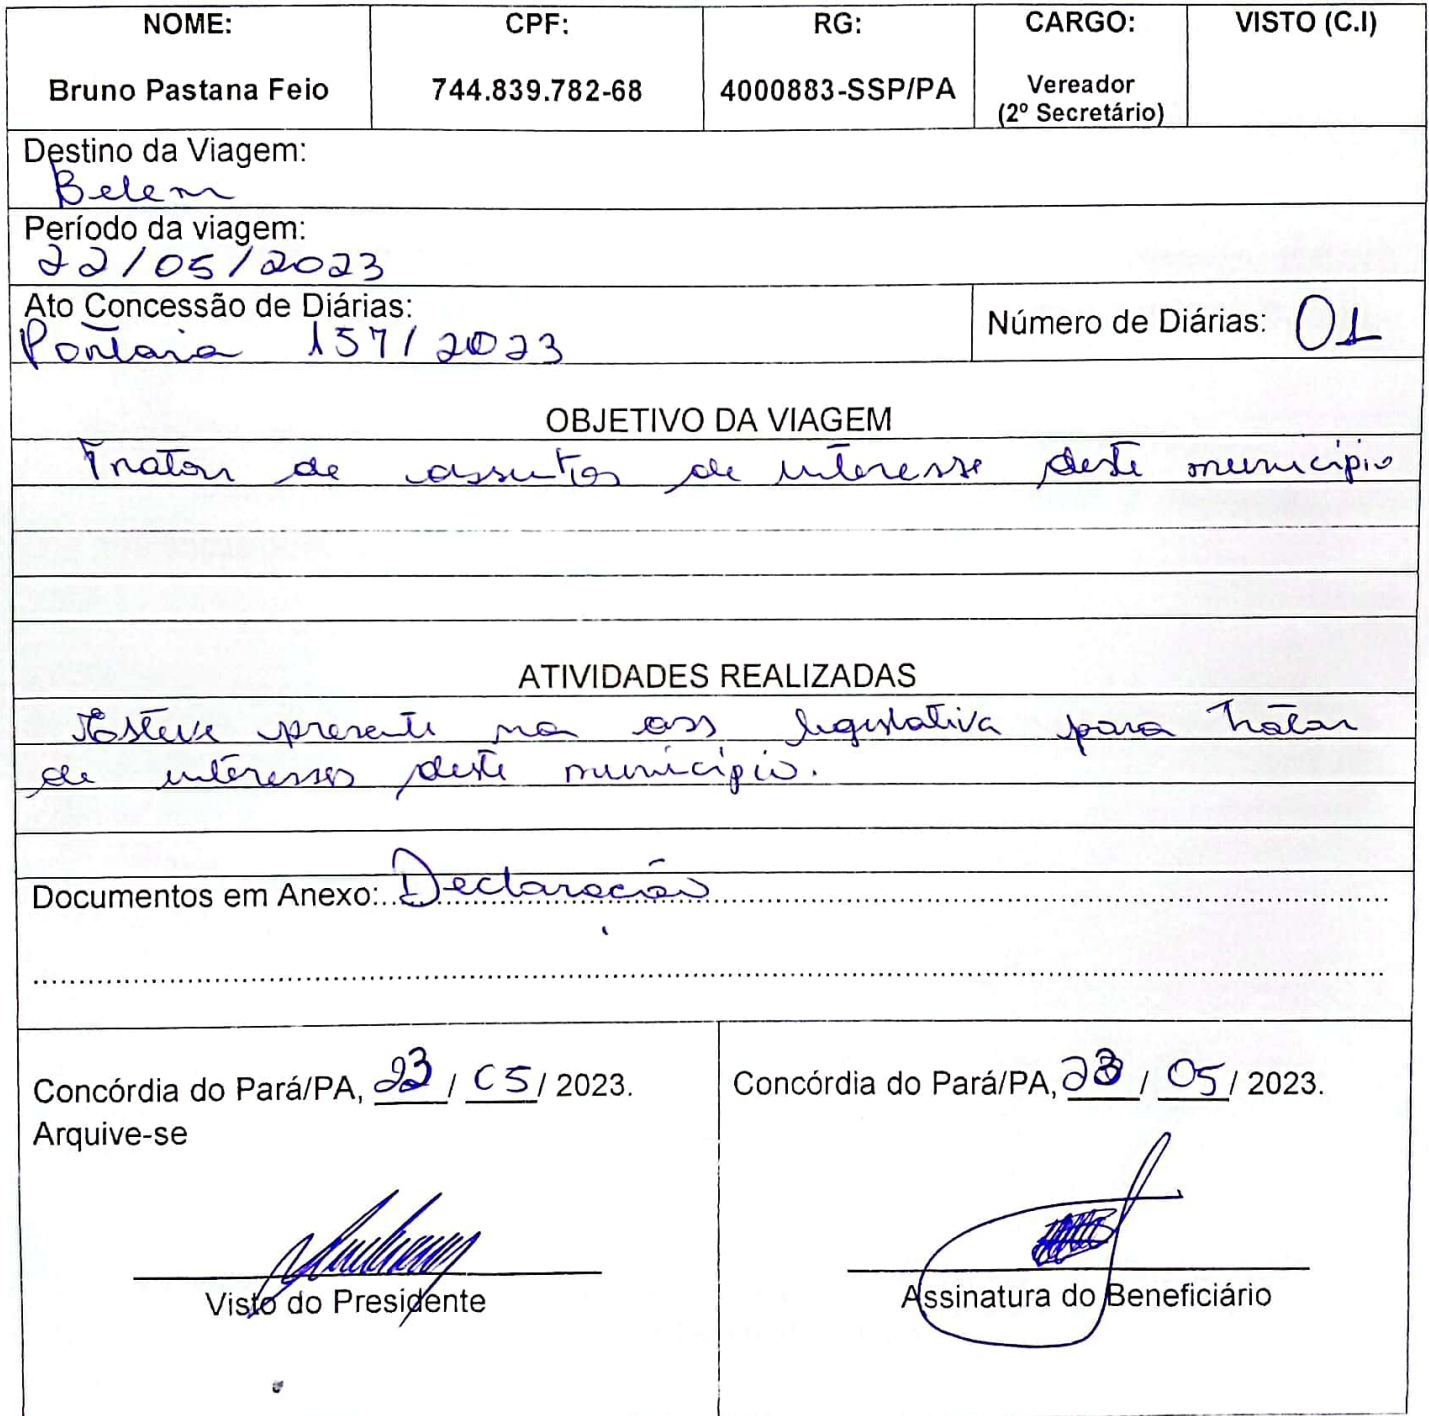 NOME: CPF: RG: CARGO: VISTO (C.I)
Bruno Pastana Feio 744.839.782-68 4000883-SSP/PA Vereador
(2º Secretário)
Destino da Viagem:
Belem
Período da viagem:
22/05/2023
Ato Concessão de Diárias:
Portaria 157/2023
Número de Diárias: 01
OBJETIVO DA VIAGEM
Tratar de assuntos de interesse deste município
ATIVIDADES REALIZADAS
Esteve presente na ass legislativa para tratar
de interesses deste município.
Documentos em Anexo: Declaração
Concórdia do Pará/PA, 23 / 05 / 2023.
Arquive-se
Visto do Presidente
Concórdia do Pará/PA, 23 / 05 / 2023.
Assinatura do Beneficiário